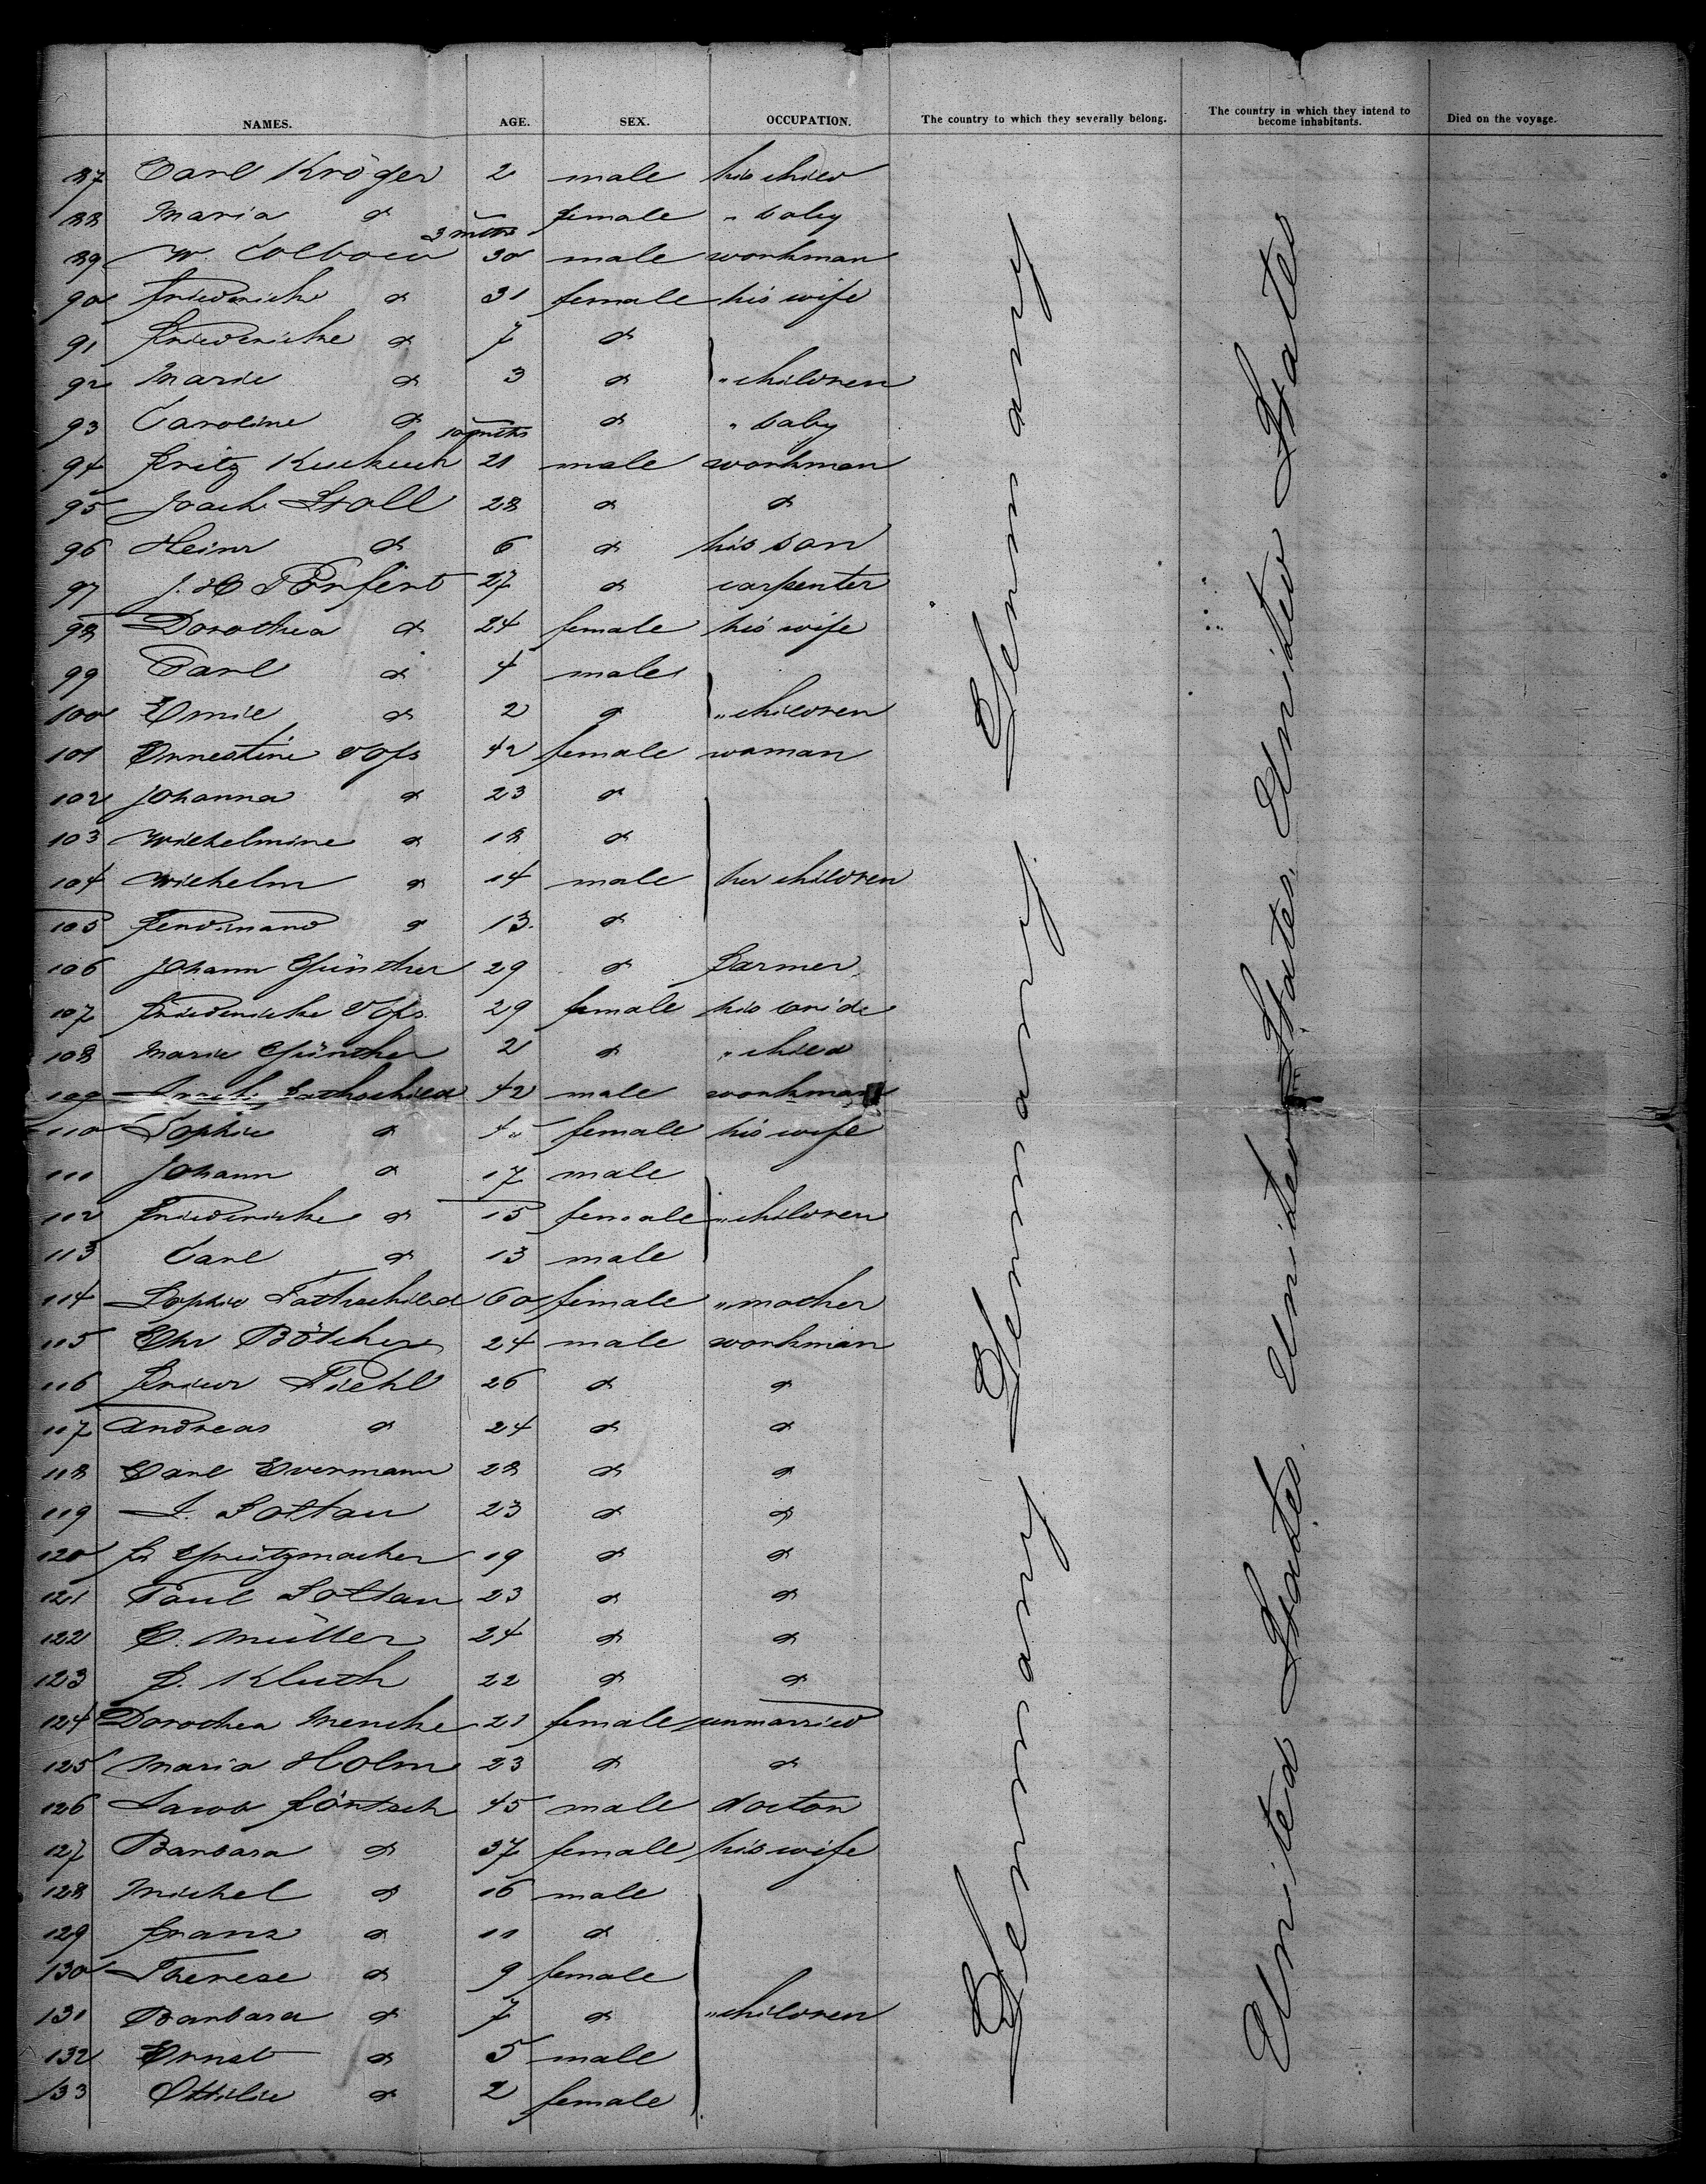 NAMES. AGE. SEX. OCCUPATION. The country to which they severally belong. The country in which they intend to become inhabitants. Died on the voyage.
87 Carl Kröger 2 male his child
88 Maria do 3 mths female " baby
89 W. Colbow 30 male workman
90 Friederike do 31 female his wife
91 Friederike do 7 do
92 Marie do 3 do " children
93 Caroline do 10 mths do " baby
94 Fritz Kuckuck 21 male workman
95 Joach. Stoll 28 do do
96 Heinr do 6 do his son
97 J. H. 27 do carpenter
98 Dorothea do 24 female his wife
99 Carl do 4 male
100 Emil do 2 do " children
101 Ernestine Voß 42 female woman
102 Johanna do 23 do
103 Wilhelmine do 18 do
104 Wilhelm do 14 male her children
105 Ferdinand do 13. do
106 Johann Günther 29 do Farmer
107 Friederike Voß 29 female his bride
108 Marie Günther 2 do " child
109 42 male workman
110 Sophie do female his wife
111 Johann do 17 male
112 Friederike do 15 female " children
113 Carl do 13 male
114 Sophie 60 female " mother
115 Chr Bötcher 24 male workman
116 Friedr Piehl 26 do do
117 Andreas do 24 do do
118 Carl Evermann 28 do do
119 Soltau 23 do do
120 19 do do
121 Paul Soltau 23 do do
122 C. Müller 24 do do
123 F. Kluth 22 do do
124 Dorothea Mencke 21 female unmarried
125 Maria Holm 23 do do
126 Jacob 45 male doctor
127 Barbara do 37 female his wife
128 Michel do 16 male
129 Franz do 11 do
130 Therese do 9 female
131 Barbara do 7 do " children
132 Ernst do 5 male
133 Ottilie do 2 female
Germany Germany Germany Germany
United States. United States. United States